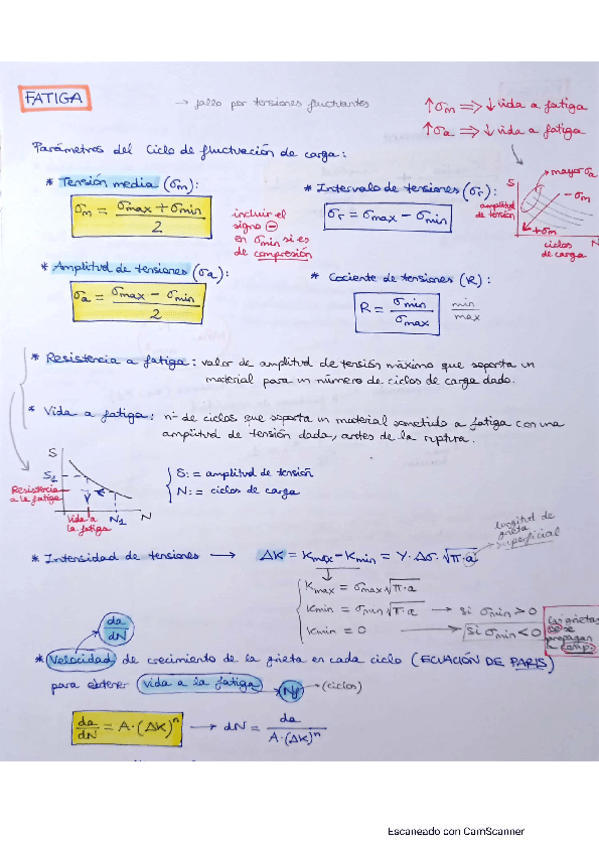 FATIGA
→ fallo por tensiones fluctuantes
↑σm ⇒ ↓ vida a fatiga
↑σa ⇒ ↓ vida a fatiga
Parámetros del Ciclo de fluctuación de carga:
* Tensión media (σm):
σm = σmax + σmin / 2
incluir el
signo ⊖
en σmin si es
de compresión
* Intervalo de tensiones (σr):
σr = σmax − σmin
S
amplitud
de tensión
mayor σa
−σm
+σm
N
ciclos
de carga
* Amplitud de tensiones (σa):
σa = σmax − σmin / 2
* Cociente de tensiones (R):
R = σmin / σmax
min
max
* Resistencia a fatiga: valor de amplitud de tensión máximo que soporta un
material para un número de ciclos de carga dado.
* Vida a fatiga: nº de ciclos que soporta un material sometido a fatiga con una
amplitud de tensión dada, antes de la ruptura.
S
S1
Resistencia
a la fatiga
Vida a
la fatiga
N1
N
S: = amplitud de tensión
N: = ciclos de carga
* Intensidad de tensiones → ΔK = Kmax − Kmin = Y · Δσ · √π·a
longitud de
grieta
superficial
Kmax = σmax √π·a
Kmin = σmin √π·a → Si σmin > 0
Kmin = 0 → Si σmin < 0
Las grietas
no se
propagan
a comp.
da/dN
* Velocidad de crecimiento de la grieta en cada ciclo (ECUACIÓN DE PARIS)
para obtener vida a la fatiga → Nf → (ciclos)
da/dN = A · (ΔK)ⁿ → dN = da / A · (ΔK)ⁿ
Escaneado con CamScanner